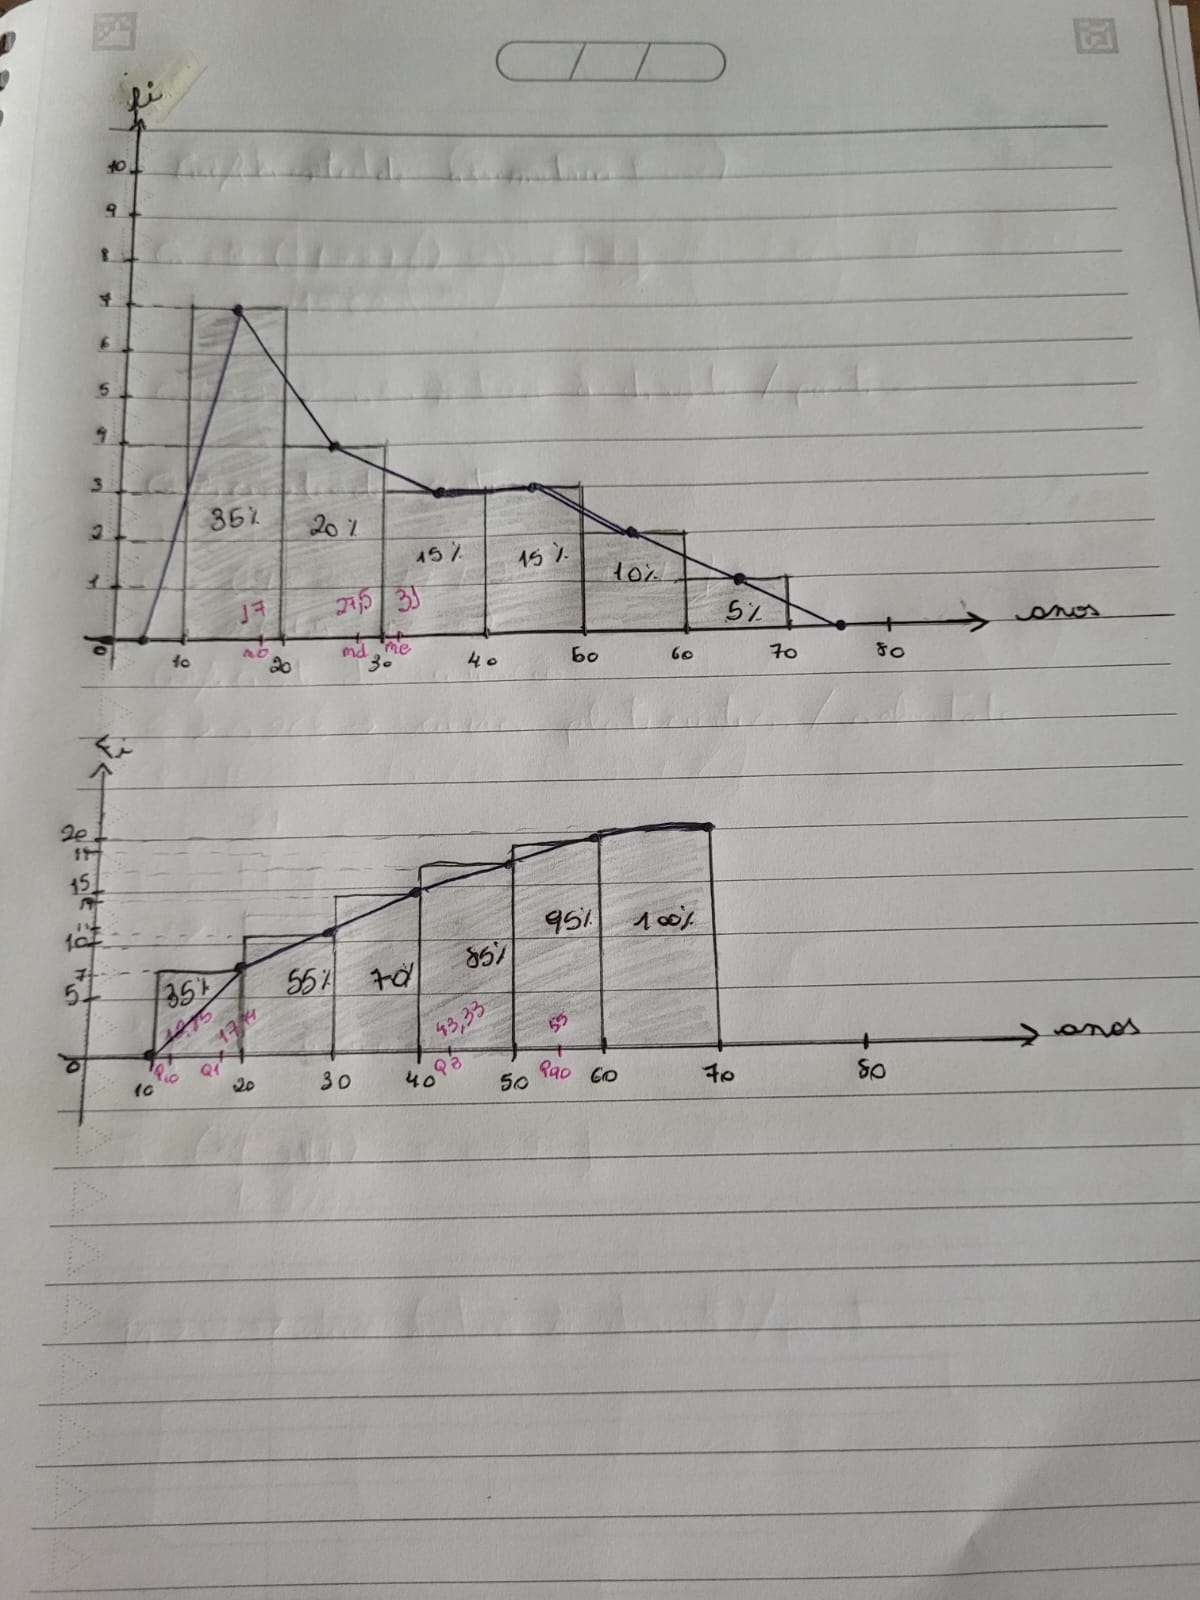 fi
10
9
8
7
6
5
4
3
2
1
35% 20% 15% 15% 10% 5%
17 27,5 31
mo md me
0 10 20 30 40 50 60 70 80 anos
Fi
20
19
17
15
14
11
10
7
5
35% 55% 70% 85% 95% 100%
17,14 43,33 55
P10 Q1 Q3 P90
0 10 20 30 40 50 60 70 80 anos